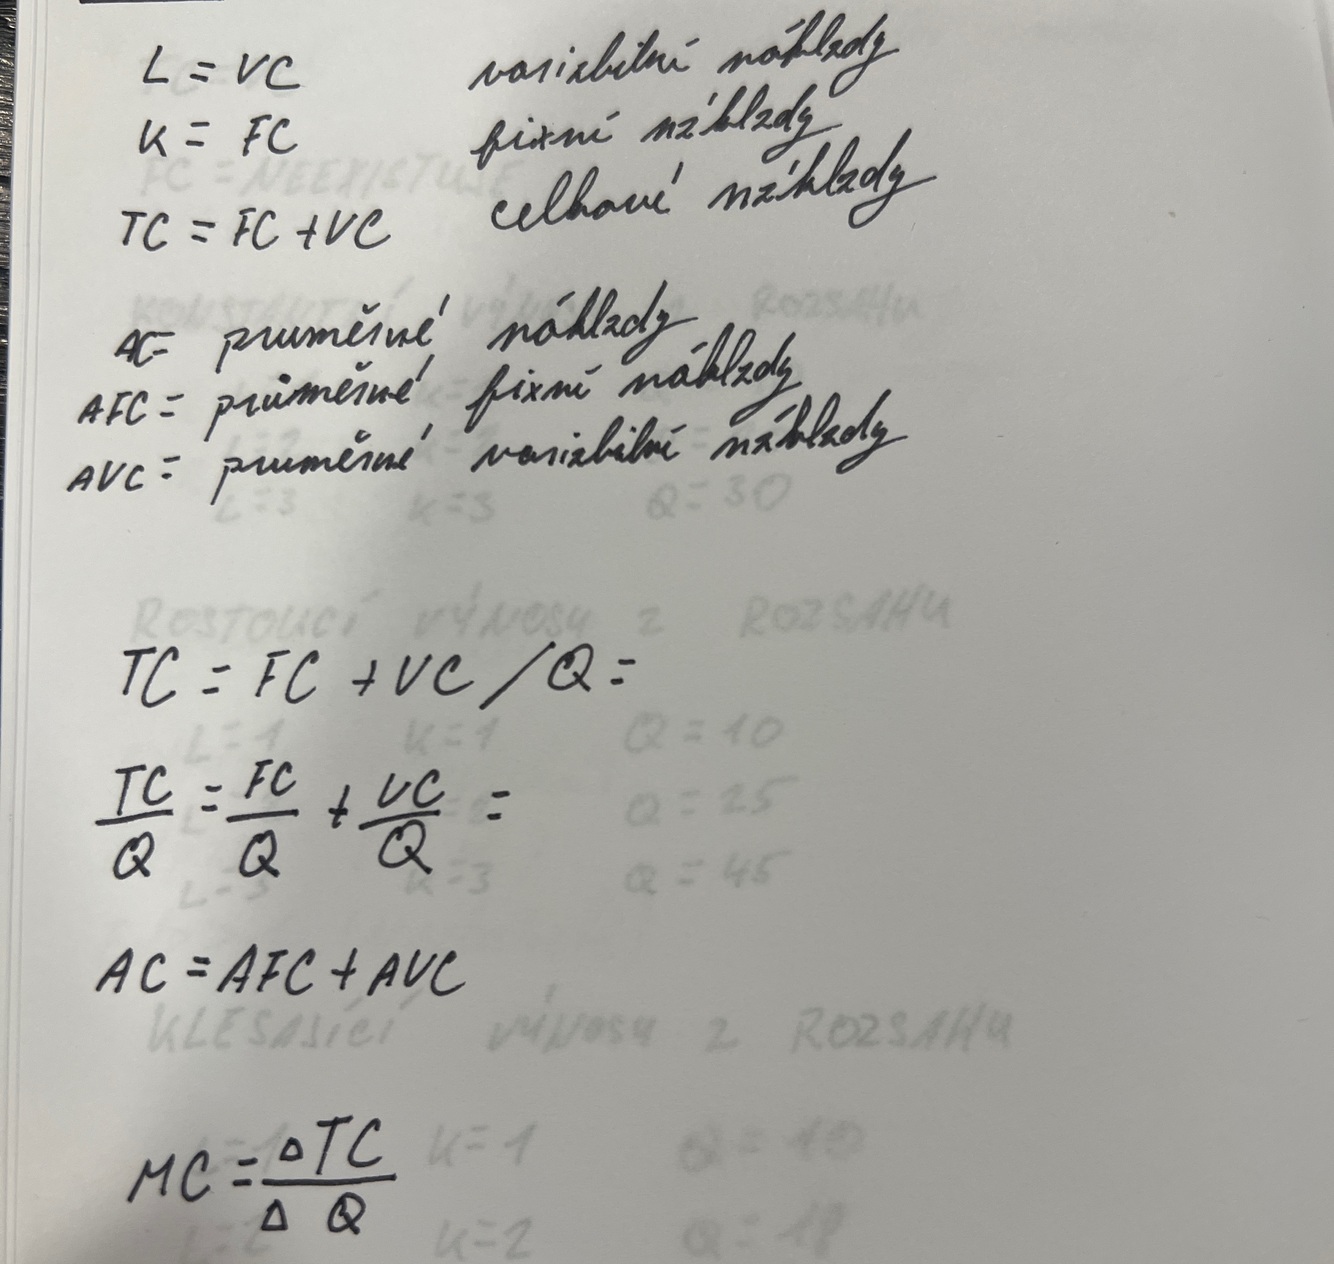 L = VC variabilní náklady
K = FC fixní náklady
TC = FC + VC celkové náklady
AC = pruměrné náklady
AFC = průměrné fixní náklady
AVC = pruměrné variabilní náklady
TC = FC + VC / Q =
TC/Q = FC/Q + VC/Q =
AC = AFC + AVC
MC = ΔTC/Δ Q